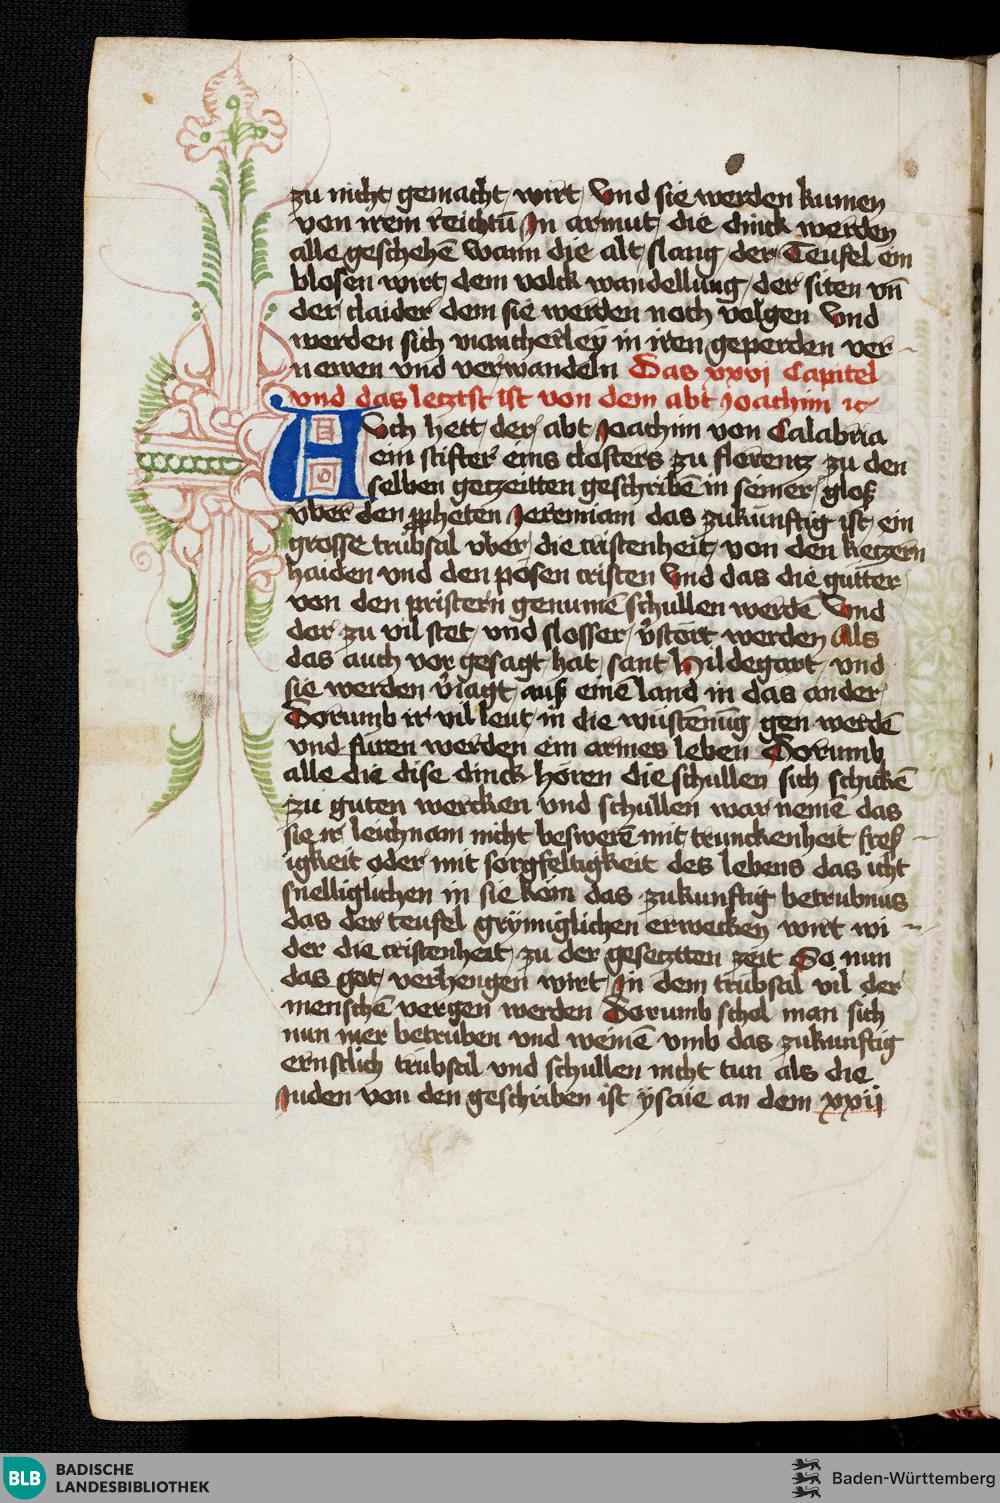 zu nicht gemacht wirt Vnd sie werden kumen
von irem reichtū In armut die dinck werden
alle geschehē wann die alt slang der Teufel ein
blosen wirt dem volck wandellung der siten vn̄
der claider dem sie werden noch volgen Vnd
werden sich mancherley in iren geperden ver-
newen vnd verwandeln Das xxvj Capitel
vnd das letzst ist von dem abt Joachim ⁊c
Avch hett der abt Joachim von Calabria
ein stifter eins closters zu florentz zu den
selben getzeitten geschribē in seiner gloß
vber den ꝓpheten Jeremiam das zukünftig ist ein
grosse trübsal vber die cristenheit von den ketzern
haiden vnd den pösen cristen Vnd das die gütter
von den pristern genumē schullen werdē Vnd
der zu vil stet vnd slosser v̓stört werden Als
das auch vor gesagt hat sant Hildegart vnd
sie werden v̓iagt auß einē land in das ander
Dorumb ir vil leut in die wüstenūg gen werdē
vnd füren werden ein armes leben Dorumb
alle die dise dinck hören die schullen sich schickē
zü guten wercken vnd schullen war nemē das
sie ir leichnam nicht beswerē mit trunckenheit fres-
igkeit oder mit sorgfeltigkeit des lebens das icht
snelliglichen in sie köm das zukunftig betrubnus
das der teufel grÿmiglichen erwecken wirt wi-
der die cristenheit zu der gesetztten zeit So nun
das got verhengen wirt In dem trübsal vil der
menschē vergen werden Dorumb schol man sich
nun mer betruben vnd weinē vmb das zukunftig
ernstlich trübsal vnd schullen nicht tun als die
Juden von den geschriben ist ÿsaie an dem xxij
BLB
BADISCHE
LANDESBIBLIOTHEK
Baden-Württemberg